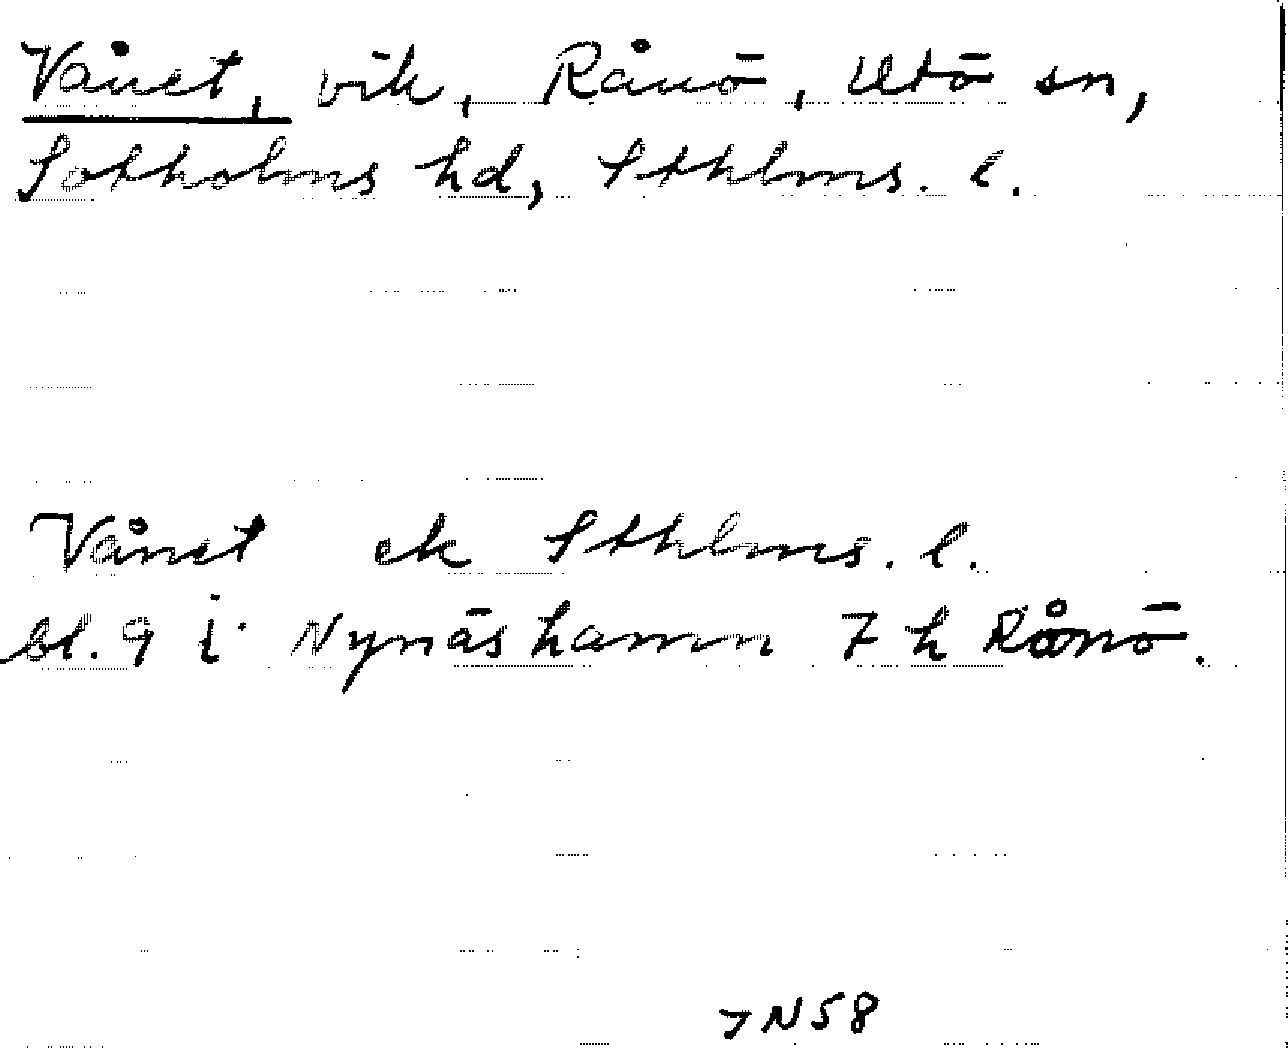 Vånet, vik, Rånö, Utö sn,
Sotholms hd, Sthlms. l.
Vånet ek Sthlms. l.
bl. 9 i Nynäshamn 7 h Rånö.
7N58